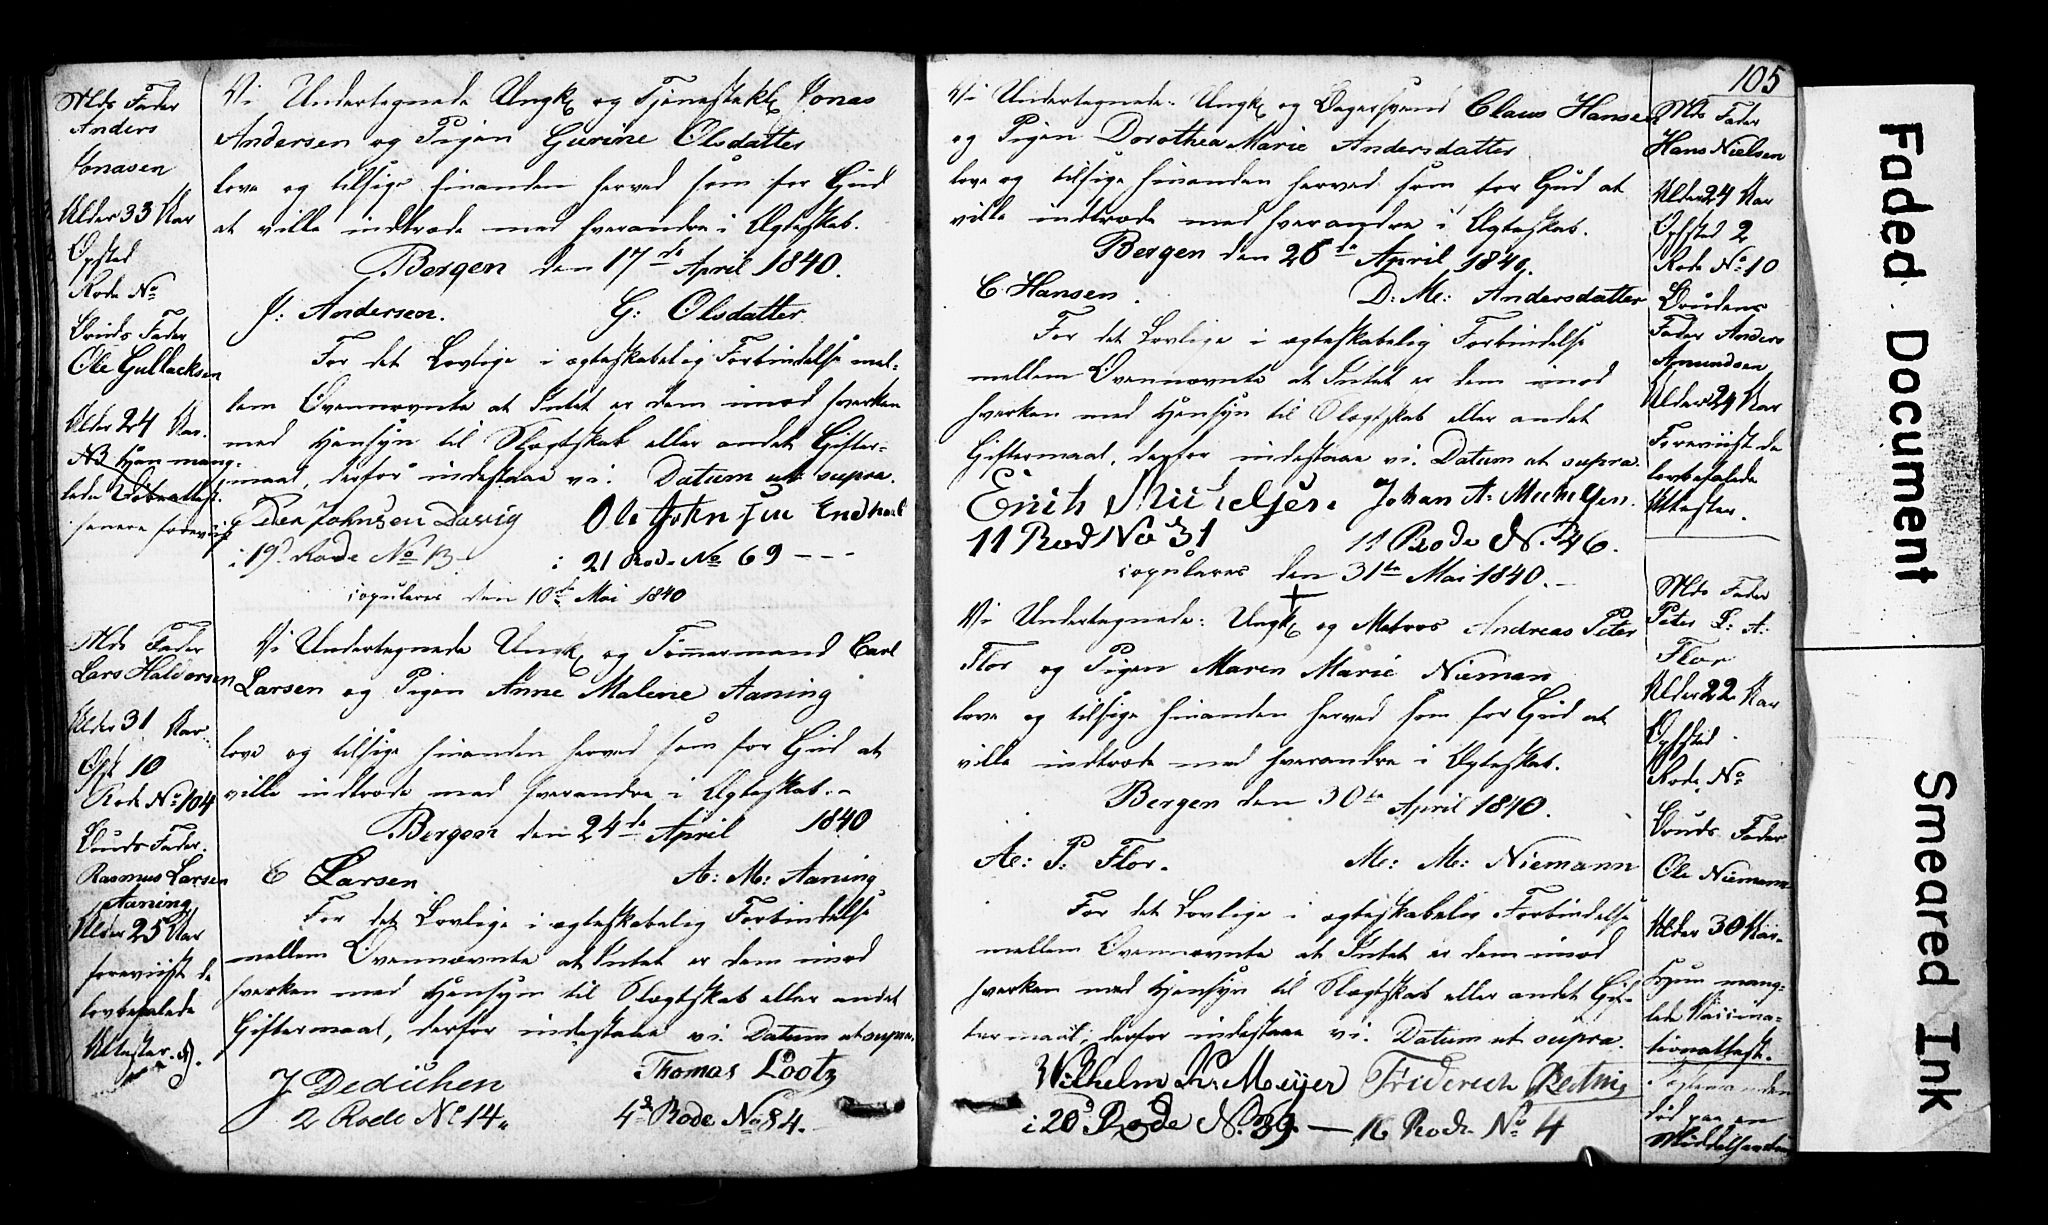 Mds Fader
Anders
Jonasen
Alder 33 Aar
Opsted
Rode No
Bruds Fader
Ole Gullacksen
Alder 24 Aar.
NB Hun mang-
lede Døbeattest.
senere foreviist
Vi Undertegnede Ungk og Tjenestekl Jonas
Andersen og Pigen Gurine Olsdatter
love og tilsige hinanden herved som for Gud
at ville indtræde med hverandre i Ægteskab.
Bergen den 17de April 1840.
J: Andersen. G: Olsdatter
For det Lovlige i ægteskabelig Forbindelse mel-
lem Ovennævnte at Intet er dem imod hverken
med Hensyn til Slægtskab eller andet Gifter-
maal, derfor indestaae vi. Datum ut supra.
Peder Johnsen Davig Ole Johnsen
i 19d Rode No 13 i 21 Rode No 69 - - -
copuleres den 10de Mai 1840
Mds Fader
Lars Haldorsen
Alder 31 Aar
Opst 10
Rode No 104
Bruds Fader.
Rasmus Larsen
Aaning
Alder 25 Aar
foreviist de
lovbefalede
Attester.
Vi Undertegnede Ungk og Tømmermand Carl
Larsen og Pigen Anne Malene Aaning
love og tilsige hinanden herved som for Gud at
ville indtræde med hverandre i Ægteskab.-
Bergen den 24de April 1840
C Larsen A: M: Aaning
For det Lovlige i ægteskabelig Forbindelse
mellem Ovennævnte at Intet er dem imod
hverken med Hensyn til Slægtskab eller andet
Giftermaal, derfor indestaae vi. Datum ut supra.
J Dedichen Thomas Lootz
2 Rode No 14. 4de Rode No 84.
105
Vi Undertegnede: Ungk og Bagersvend Claus Hansen
og Pigen Dorothea Marie Andersdatter
love og tilsige hinanden herved som for Gud at
ville indtræde med hverandre i Ægteskab.
Bergen den 28de April 1840.
C Hansen. D: M: Andersdatter
For det Lovlige i ægteskabelig Forbindelse
mellem Ovennævnte at Intet er dem imod
hverken med Hensyn til Slægtskab eller andet
Giftermaal, derfor indestaae vi. Datum ut supra.
Erich Michelsen. Johan A: Michelsen.
11 Rod No 31 11 Rode No. 46.
copuleres den 31te Mai 1840.-
Mds Fader
Hans Nielsen
Alder 24 Aar
Opsted 2
Rode No 10
Brudens
Fader Anders
Amundsen
Alder 24 Aar
Foreviist de
lovbefalede
Attester.
Vi Undertegnede: Ungk og Matros Andreas Peter
Flor og Pigen Maren Marie Nieman
love og tilsige hinanden herved som for Gud at
ville indtræde med hverandre i Ægteskab.
Bergen den 30te April 1840.
A: P: Flor. M: M: Niemann
For det Lovlige i ægteskabelig Forbindelse
mellem Ovennævnte at Intet er dem imod
hverken med Hensyn til Slægtskab eller andet Gif-
termaal, derfor indestaae vi. Datum ut supra.
Wilhelm K: Meijer Friderich
i 20d Rode No. 39. — 16 Rode No 4
Mds Fader
Peter A:
Flor
Alder 22 Aar
Opsted
Rode No
Bruds Fader
Ole Niemann
Alder 30 Aar.
Hun mang-
lede Vaccina-
tionattest.
død paa en
Faded Document
Smeared Ink